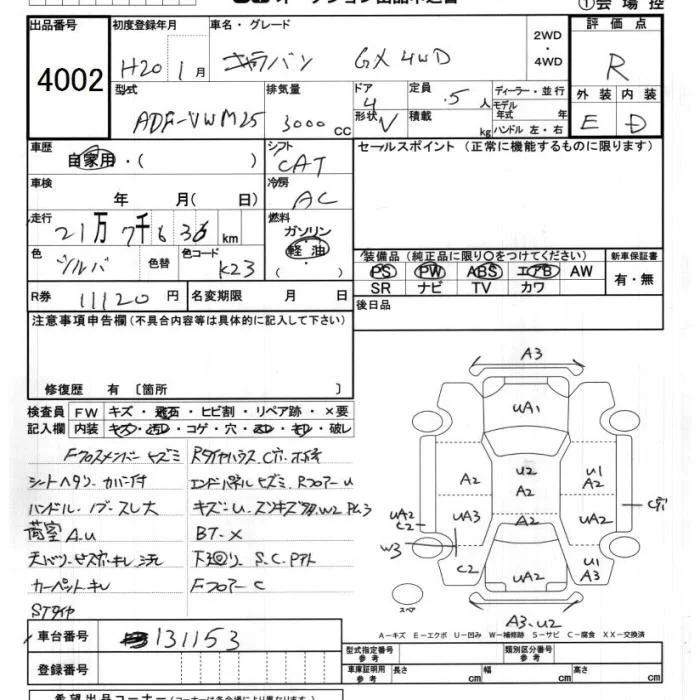 ①会場控
出品番号 初度登録年月 車名・グレード 評価点
4002 H20 1月 キャラバン GX 4WD 2WD・4WD R
型式 排気量 ドア 定員 ディーラー・並行 外装 内装
ADF-VWM25 3000cc 4 5人 モデル年式 年 E D
形状 V 積載 kg ハンドル 左・右
車歴 シフト セールスポイント (正常に機能するものに限ります)
自家用・( ) CAT
車検 冷房
年 月( 日) AC
走行 燃料
21万7千636km ガソリン
軽油
( )
色 シルバ 色替 色コード K23
装備品 (純正品に限り○をつけてください) 新車保証書
PS PW ABS エアB AW 有・無
SR ナビ TV カワ
R券 11120円 名変期限 月 日 後日品
注意事項申告欄(不具合内容等は具体的に記入して下さい)
修復歴 有 〔箇所 〕
検査員 FW キズ・飛石・ヒビ割・リペア跡・×要
記入欄 内装 キズ・汚レ・コゲ・穴・スレ・キレ・破レ
Fクロスメンバー キズミ
シートヘタリ、カバー付
ハンドル、ノブースレ大
荷室 A.U
カーペットキレ
STタイヤ
BT-X
下廻リ S.C.Pテト
Fフロアー C
A3
UA1
A2 U2 A2 U1 A2
UA2 C2 UA3 A2 UA2 C穴
W3 C2 UA2 U1 A3
スペア
A3.U2
A-キズ E-エクボ U-凹み W-補修跡 S-サビ C-腐食 XX-交換済
車台番号 131153
登録番号
型式指定番号 参考 類別区分番号 参考
車庫証明用 参考 長さ cm 幅 cm 高さ cm
希望出品コーナー(コーナーは各会場により異なります)